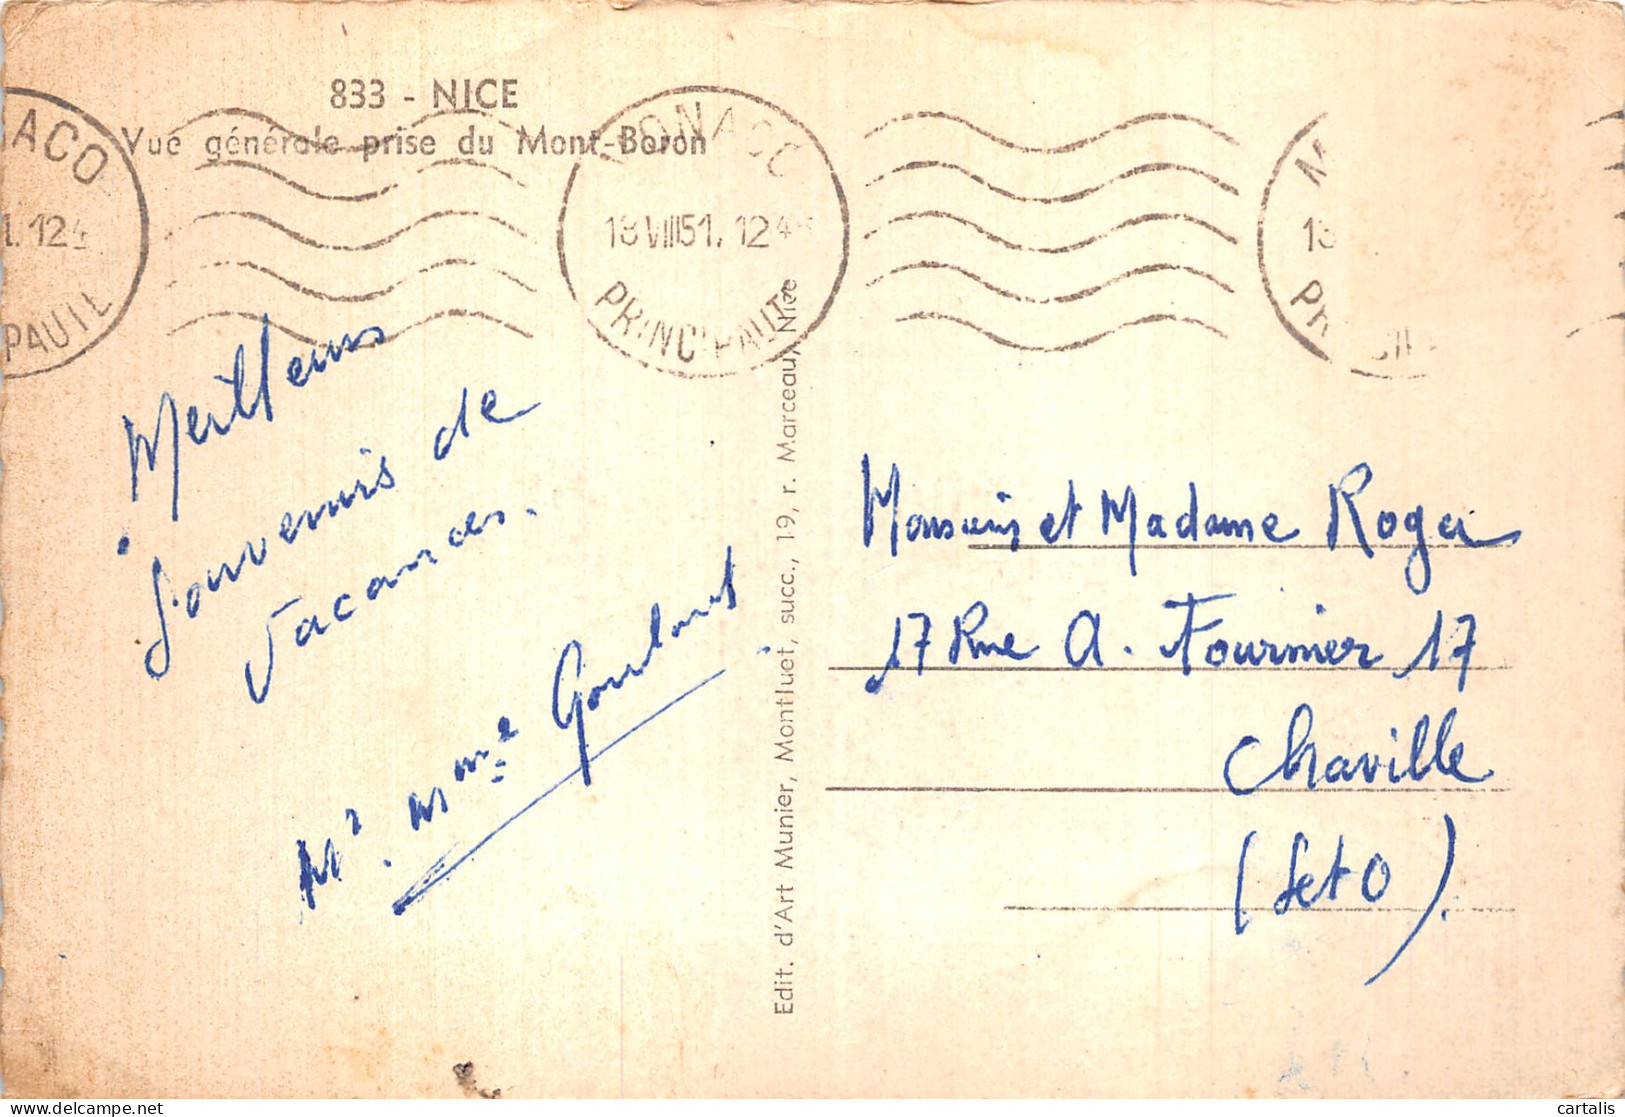 833 - NICE
Vue générale prise du Mont-Boron
ACO
1. 124
PAUTÉ
MONACO
18 VIII 51. 124
PRINCIPAUTÉ
M
13
PRINCIP
Meilleurs
Souvenirs de
Vacances.
Mr. Mme
Edit. d'Art Munier, Montluet, succ., 19, r. Marceau, Nice
Monsieur et Madame Roger
17 Rue A. Fournier 17
Chaville
(S et O).
cartalis